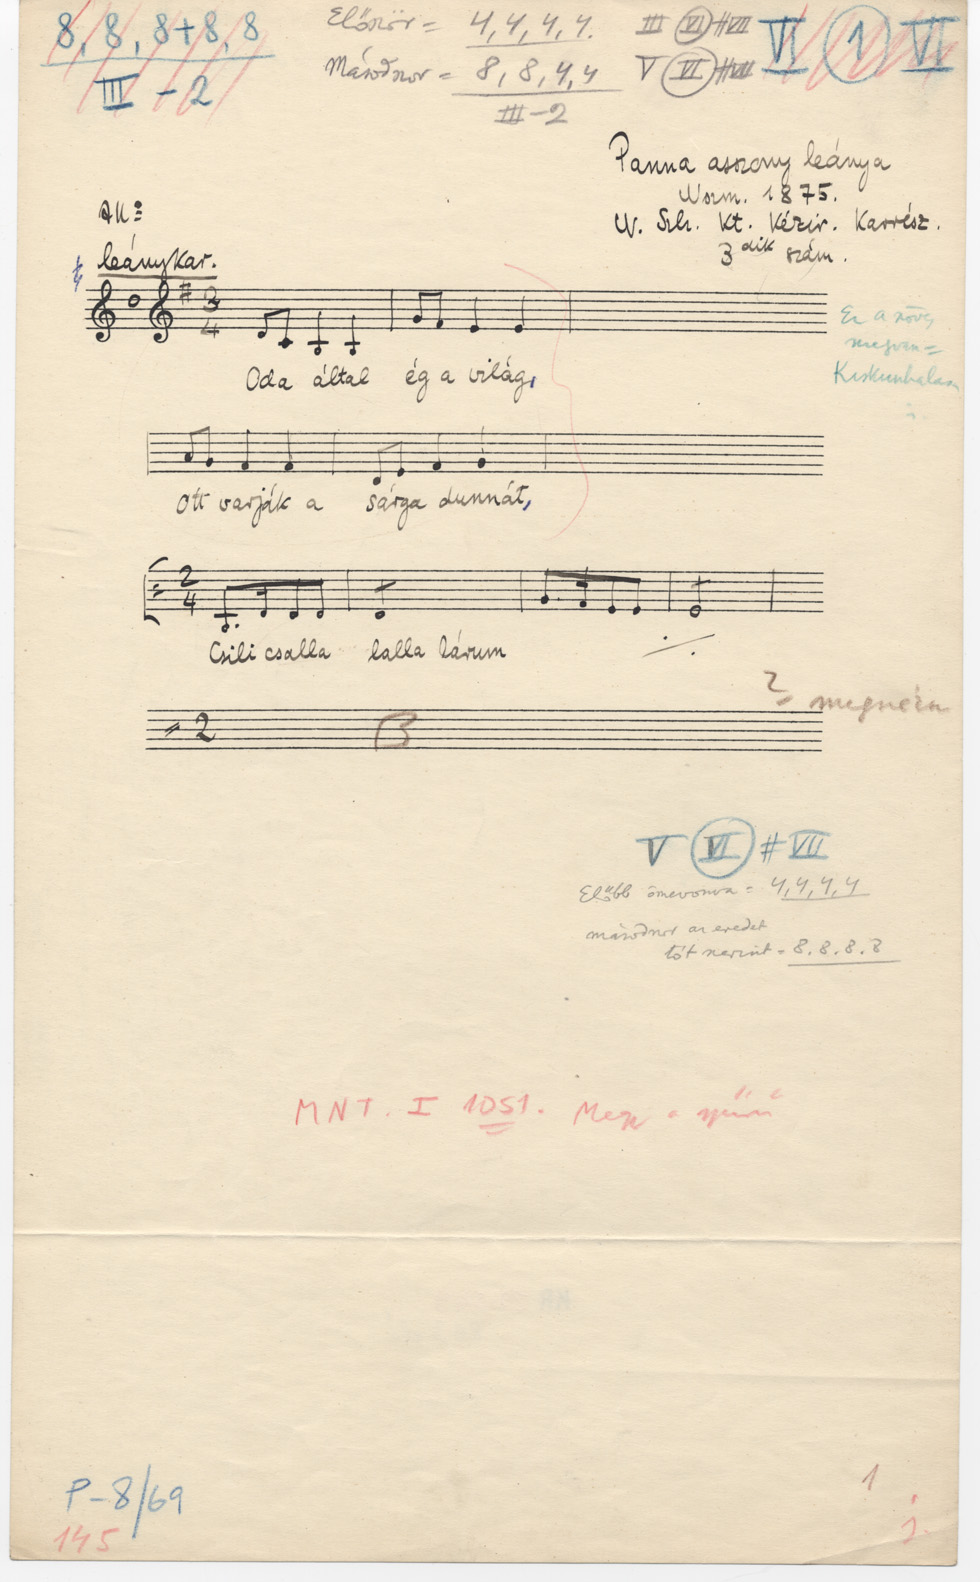 8, 8, 8+8, 8
III - 2
Először = 4, 4, 4, 4.
Másodszor = 8, 8, 4, 4
III - 2
III VI #VII
V VI #VII
VI 1 VI
Panna asszony leánya
1875.
Kt. Kézir. Karrész.
3dik szám.
All:
leánykar.
3
4
Oda által ég a világ,
Ez a szöveg
megvan =
Kiskunhalas
Ott varják a sárga dunnát,
2
4
Csili csalla lalla lárum
2
? megnézn
V VI #VII
Előbb = 4, 4, 4, 4
másodszor az eredet
tót szerint = 8. 8. 8. 8
MNT. I 1051.
P-8/69
145
1
j.